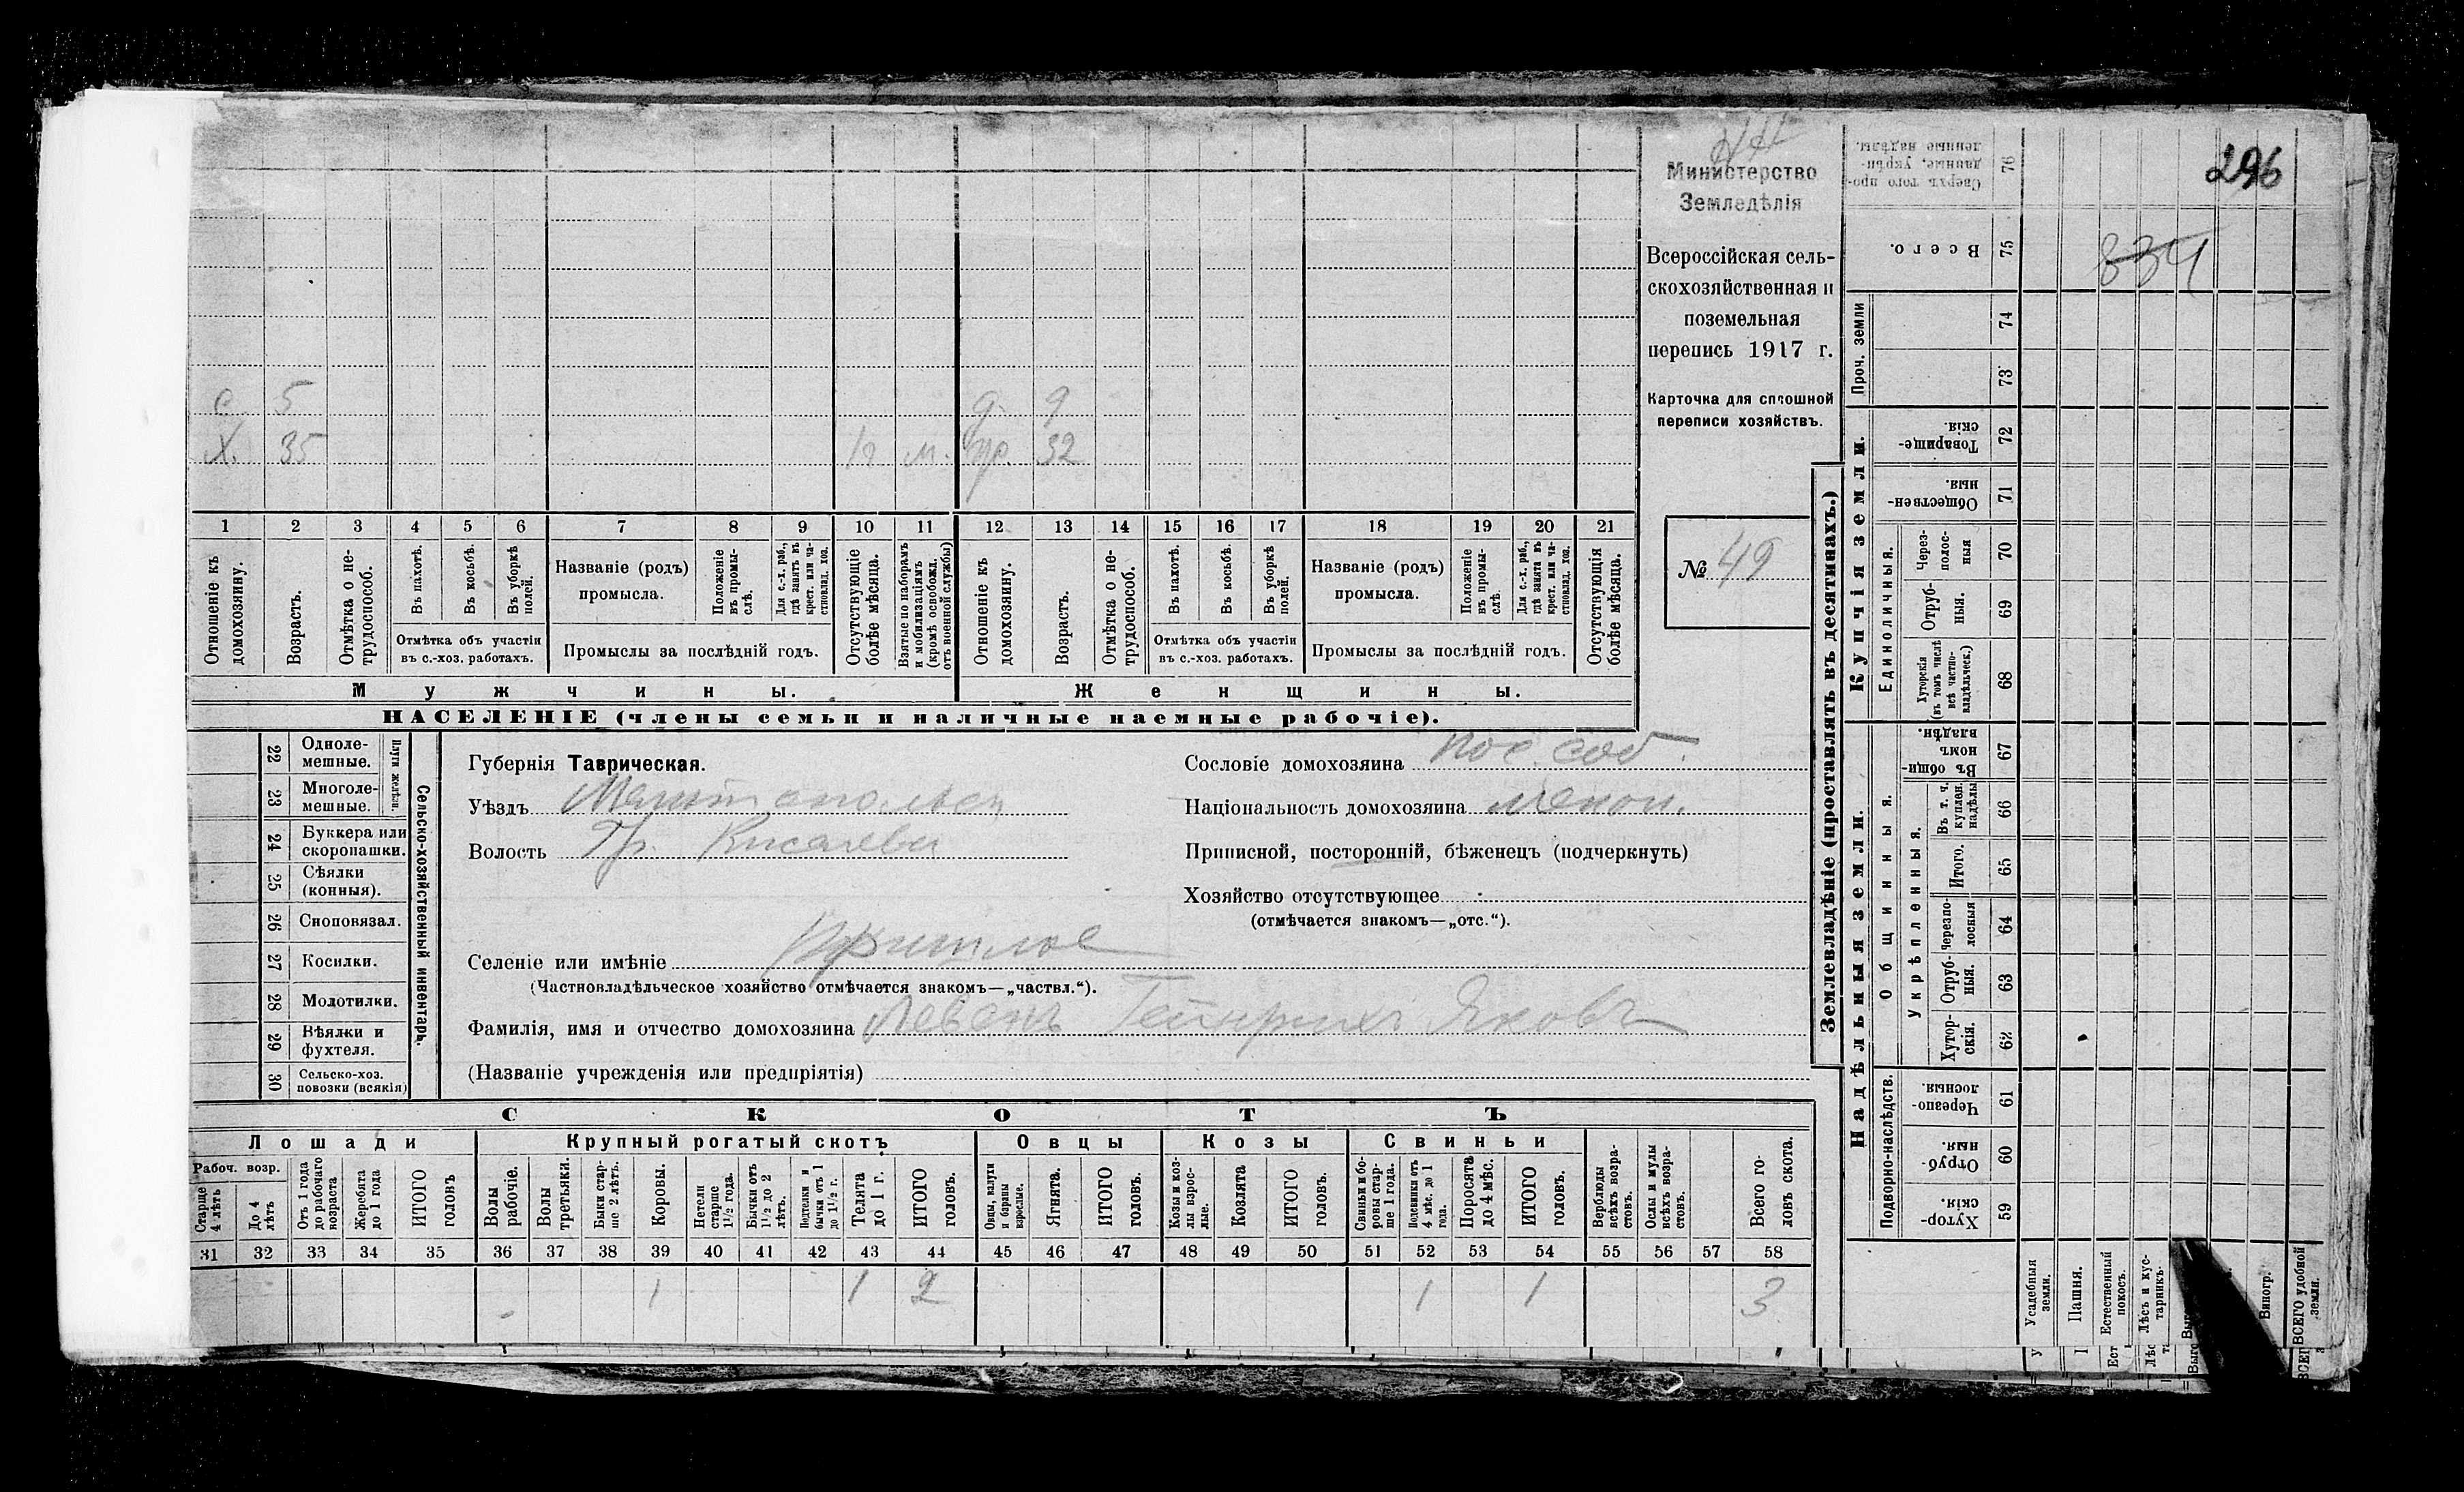 296
834
Министерство
Земледѣлія
Всероссійская сель-
скохозяйственная и
поземельная
перепись 1917 г.
Карточка для сплошной
переписи хозяйствъ.
№ 49
с. 5 д. 9
Х. 35 1 г. м. 32
1 2 3 4 5 6 7 8 9 10 11 12 13 14 15 16 17 18 19 20 21
Отношеніе къ домохозяину.
Возрастъ.
Отмѣтка о не-трудоспособ.
Въ пахотѣ.
Въ косьбѣ.
Въ уборкѣ полей.
Отмѣтка объ участіи
въ с.-хоз. работахъ.
Названіе (родъ)
промысла.
Положеніе въ промы-слѣ.
Для с.-х. раб., гдѣ занятъ въ крест. или ча-стновлад. хоз.
Промыслы за послѣдній годъ.
Отсутствующіе болѣе мѣсяца.
Взятые по наборамъ и мобилизаціямъ (кромѣ освобожд. отъ военной службы)
Отношеніе къ домохозяину.
Возрастъ.
Отмѣтка о не-трудоспособ.
Въ пахотѣ.
Въ косьбѣ.
Въ уборкѣ полей.
Отмѣтка объ участіи
въ с.-хоз. работахъ.
Названіе (родъ)
промысла.
Положеніе въ промы-слѣ.
Для с.-х. раб., гдѣ занята въ крест. или ча-стновлад. хоз.
Промыслы за послѣдній годъ.
Отсутствующія болѣе мѣсяца.
Мужчины. Женщины.
НАСЕЛЕНІЕ (члены семьи и наличные наемные рабочіе).
22 Одноле-мешные.
23 Многоле-мешные.
Плуги желѣзн.
24 Буккера или скоропашки.
25 Сѣялки (конныя).
26 Сноповязал.
27 Косилки.
28 Молотилки.
29 Вѣялки и фухтеля.
30 Сельско-хоз. повозки (всякія)
Сельско-хозяйственный инвентарь.
Губернія Таврическая.
Уѣздъ Мелитопольск
Волость
Селеніе или имѣніе
(Частновладѣльческое хозяйство отмѣчается знакомъ—„частвл.“).
Фамилія, имя и отчество домохозяина Левенъ Гейнрихъ Яковъ
(Названіе учрежденія или предпріятія)
Сословіе домохозяина пос. соб.
Національность домохозяина менон.
Приписной, посторонній, бѣженецъ (подчеркнуть)
Хозяйство отсутствующее
(отмѣчается знакомъ—„отс.“).
СКОТЪ
Лошади Крупный рогатый скотъ Овцы Козы Свиньи
Рабоч. возр.
Старше 4 лѣтъ
До 4 лѣтъ
Отъ 1 года до рабочаго возраста
Жеребята до 1 года
ИТОГО головъ
Волы рабочіе.
Волы третьяки.
Быки стар-ше 2 лѣтъ.
Коровы.
Нетели старше 1½ года.
Бычки отъ 1½ до 2 лѣтъ.
Подтелки и бычки отъ 1 до 1½ г.
Телята до 1 г.
ИТОГО головъ.
Овцы, валухи и бараны взрослые.
Ягнята.
ИТОГО головъ.
Козы и коз-лы взрос-лые.
Козлята
ИТОГО головъ.
Свиньи и бо-ровы стар-ше 1 года.
Подсвинки отъ 4 мѣс. до 1 года.
Поросята до 4 мѣс.
ИТОГО головъ.
Верблюды всѣхъ возра-стовъ.
Ослы и мулы всѣхъ возра-стовъ.
Всего го-ловъ скота.
31 32 33 34 35 36 37 38 39 40 41 42 43 44 45 46 47 48 49 50 51 52 53 54 55 56 57 58
1 1 2 1 1 3
Землевладѣніе (проставлять въ десятинахъ.)
Сверхъ того про-данные, укрѣп-ленные надѣлы. 76
Всего. 75
Проч. земли
74
73
Купчія земли.
Товарище-скія. 72
Обществен-ныя. 71
Единоличныя.
Через-полос-ныя 70
Отруб-ныя. 69
Хуторскія (въ томъ числѣ всѣ частно-владѣльческ.) 68
Надѣльныя земли.
Общинныя.
Въ общи-номъ владѣн. 67
Укрѣпленныя.
Въ т. ч. куплен. надѣлы 66
Итого. 65
Черезпо-лосныя 64
Отруб-ныя. 63
Хутор-скія. 62
Подворно-наслѣдств.
Черезпо-лосныя. 61
Отруб-ныя. 60
Хутор-скія. 59
Усадебныя земли.
Пашня.
Естественный покосъ.
Лѣсъ и кус-тарникъ.
Виногр.
ВСЕГО удобной земли.